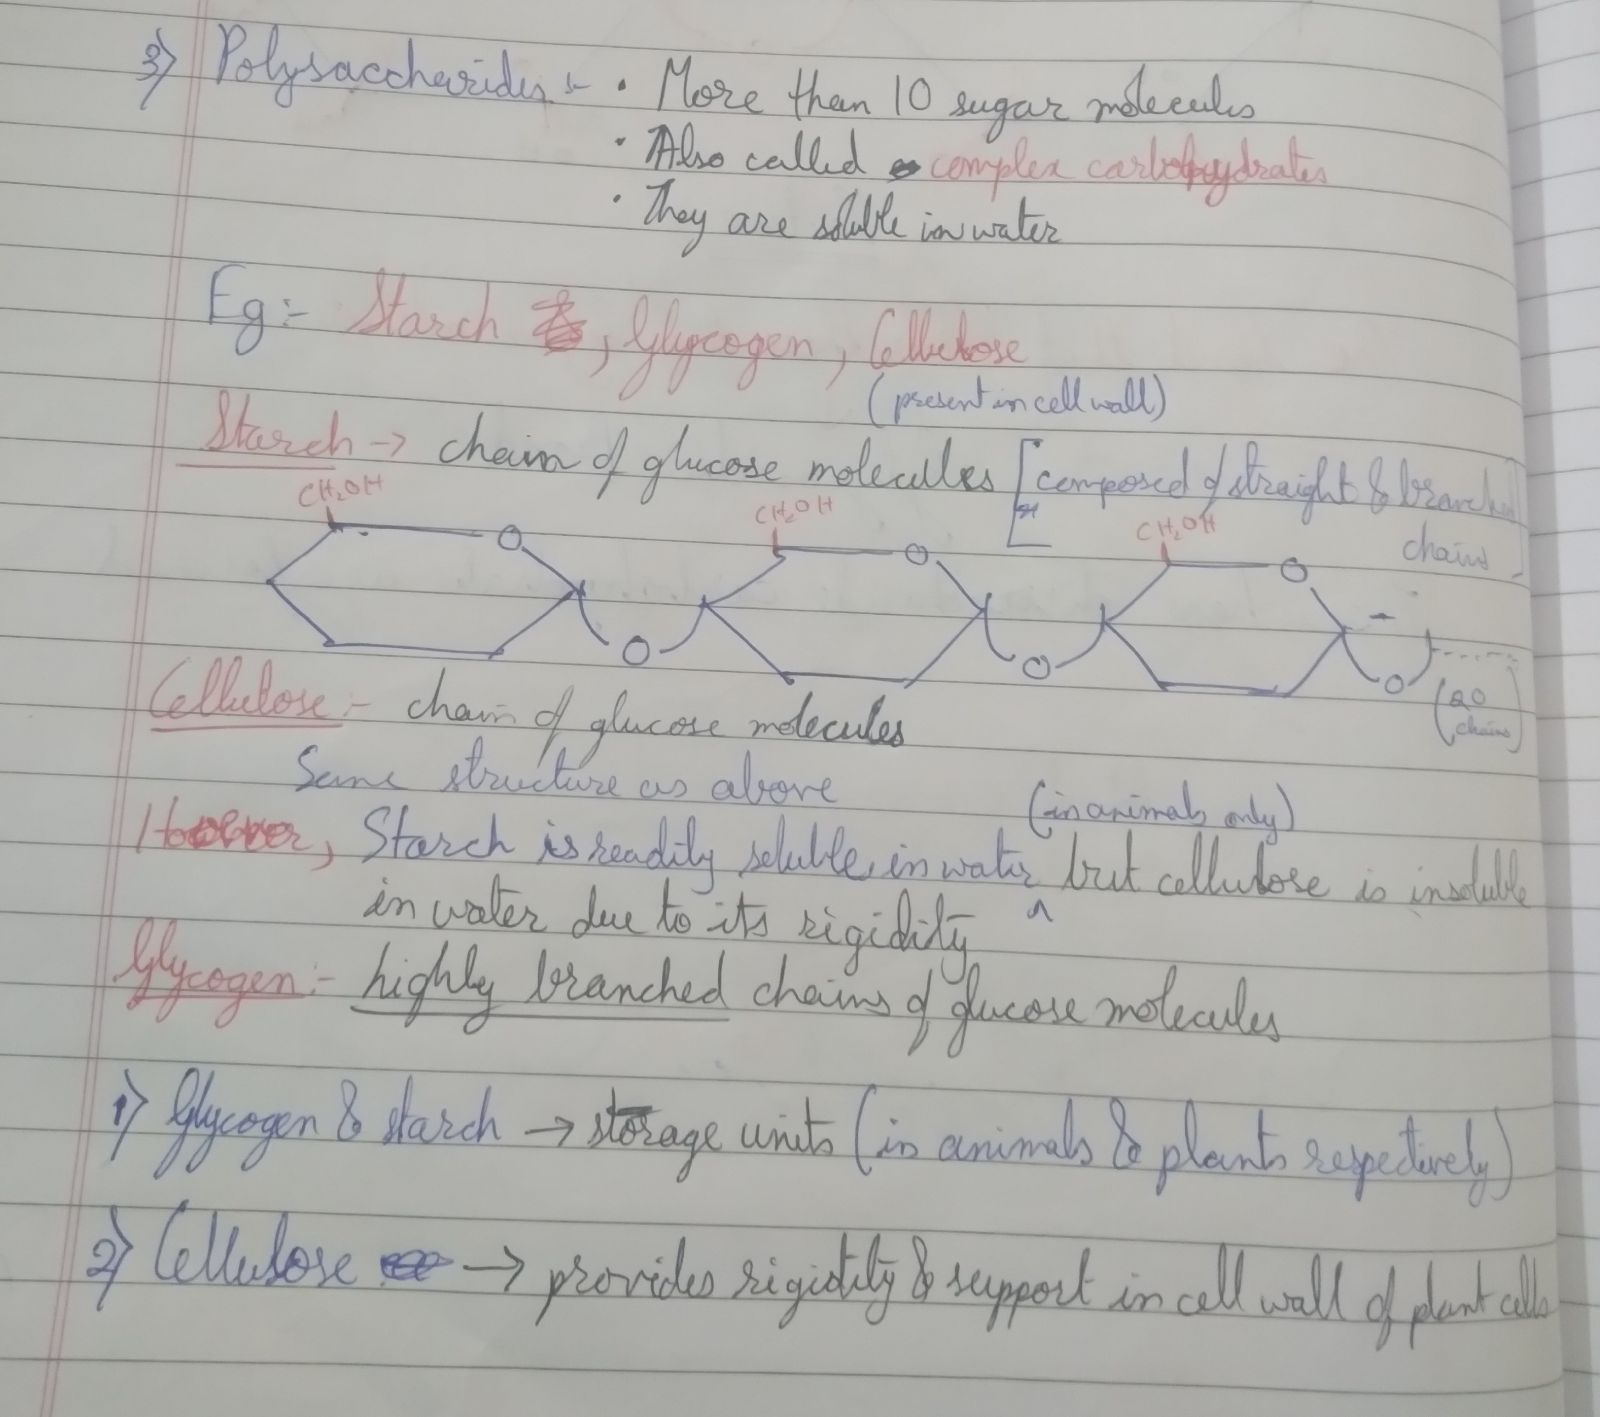 3) Polysaccharides :- • More than 10 sugar molecules
• Also called complex carbohydrates
• They are soluble in water
Eg :- Starch , Glycogen , Cellulose
(present in cell wall)
Starch → chain of glucose molecules [composed of straight & branched
chains]
CH2OH CH2OH CH2OH
O O O
O O O
(20
chains)
Cellulose :- chain of glucose molecules
Same structure as above
(in animals only)
However, Starch is readily soluble in water ^ but cellulose is insoluble
in water due to its rigidity
Glycogen :- highly branched chains of glucose molecules
1) Glycogen & starch → storage units (in animals & plants respectively)
2) Cellulose → provides rigidity & support in cell wall of plant cells